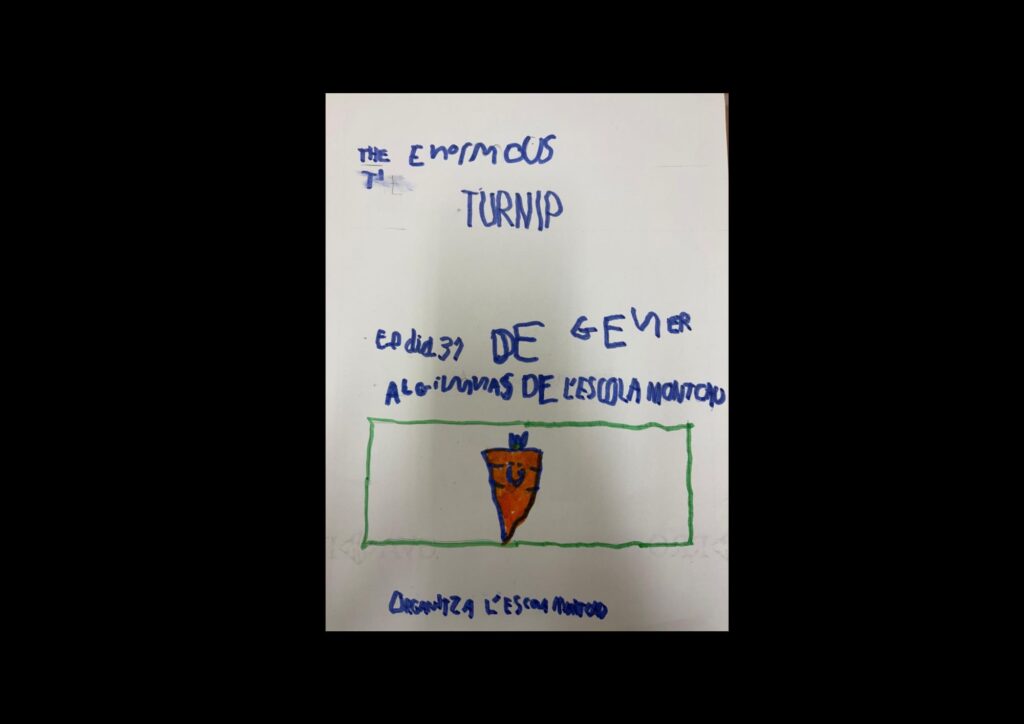 THE EnORMOUS
T
TURNIP
EL dia 31 DE GENER
AL GiMNAS DE L'ESCOLA MONTORO
ORGANITZA L'ESCOLA MONTORO